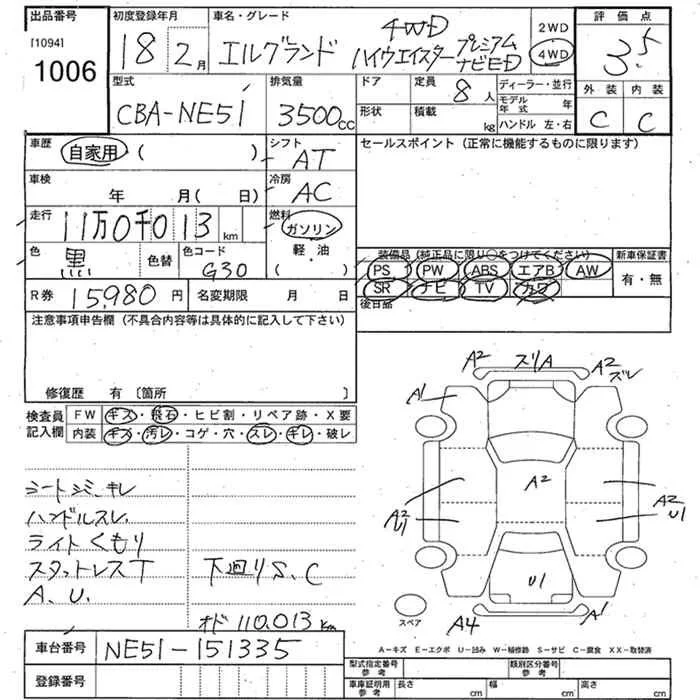 出品番号 初度登録年月 車名・グレード 評価点
[1094] 18 2月 エルグランド 4WD 2WD 3.5
1006 ハイウエイスター プレミアム ナビED 4WD
型式 排気量 ドア 定員 8人 ディーラー・並行 外装 内装
CBA-NE51 3500cc 形状 積載 kg モデル年式 年 C C
ハンドル 左・右
車歴 自家用 ( ) シフト AT セールスポイント(正常に機能するものに限ります)
車検 年 月( 日) 冷房 AC
走行 11万0千013km 燃料 ガソリン
色 黒 色替 色コード G30 軽・油 ( )
装備品(純正品に限り○をつけてください) 新車保証書
PS PW ABS エアB AW 有・無
SR ナビ TV カワ
後日品
R券 15,980円 名変期限 月 日
注意事項申告欄(不具合内容等は具体的に記入して下さい)
修復歴 有〔箇所 〕
検査員記入欄 FW キズ・飛石・ヒビ割・リペア跡・X要
内装 キズ・汚レ・コゲ・穴・スレ・キレ・破レ
シートシミ、キレ
ハンドルスレ
ライトくもり
スタットレスT 下廻りS、C
A、U、
オド 110,013Km
A2 ズリA A2 ズレ
A1
A2
A2 U1
A2 U1
U1
スペア A4 A1
A-キズ E-エクボ U-凹み W-補修跡 S-サビ C-腐食 XX-取替済
車台番号 NE51-151335
登録番号
型式指定番号 参考 類別区分番号 参考
車庫証明用 参考 長さ cm 幅 cm 高さ cm